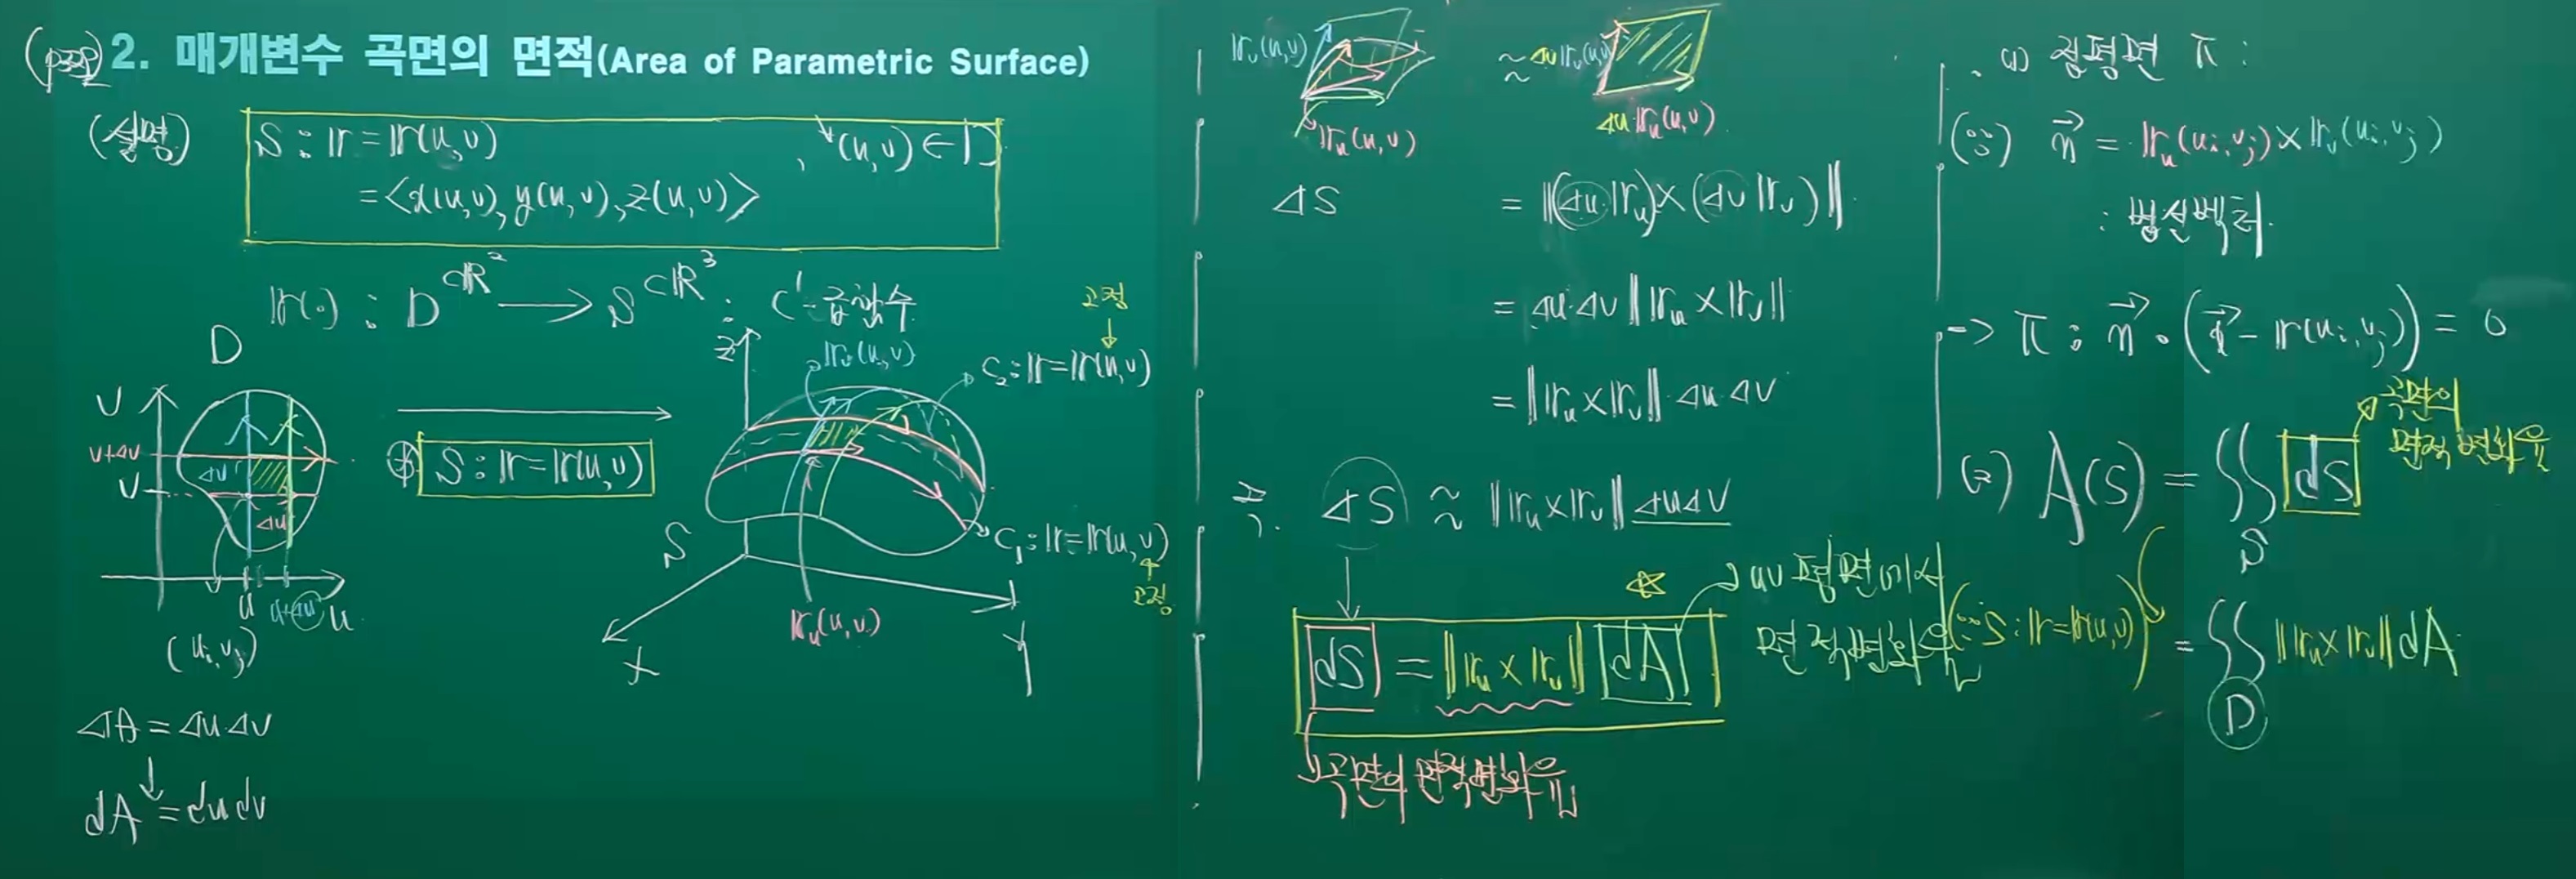 2. 매개변수 곡면의 면적(Area of Parametric Surface)
(설명)
S : r = r(u,v) , ∀(u,v) ∈ D
= <x(u,v), y(u,v), z(u,v)>
r(·) : D ⊂ R² → S ⊂ R³ : C¹-급함수
D
v
v+Δv
v
Δv
Δu
u
u+Δu
u
(uᵢ, vⱼ)
ΔA = Δu·Δv
↓
dA = du dv
S : r = r(u,v)
z
r_v(u,v)
고정
↓
C₂ : r = r(u,v)
S
C₁ : r = r(u,v)
↑
고정
r_u(u,v)
x
y
r_v(u,v)
r_u(u,v)
≈ Δv r_v(u,v)
Δu·r_u(u,v)
ΔS = ‖(Δu·r_u)×(Δv r_v)‖
= Δu·Δv ‖r_u × r_v‖
= ‖r_u × r_v‖·Δu·Δv
ΔS ≈ ‖r_u × r_v‖ ΔuΔv
↓
☆
dS = ‖r_u × r_v‖ dA
uv평면에서
면적변화율
곡면의 면적변화율
(1) 접평면 π :
(∵) n⃗ = r_u(uᵢ,vⱼ) × r_v(uᵢ,vⱼ)
: 법선벡터
→ π : n⃗ · (x⃗ - r(uᵢ,vⱼ)) = 0
(2) A(S) = ∬ dS
S
곡면의
면적변화율
(∵ S : r = r(u,v))
= ∬ ‖r_u × r_v‖ dA
D